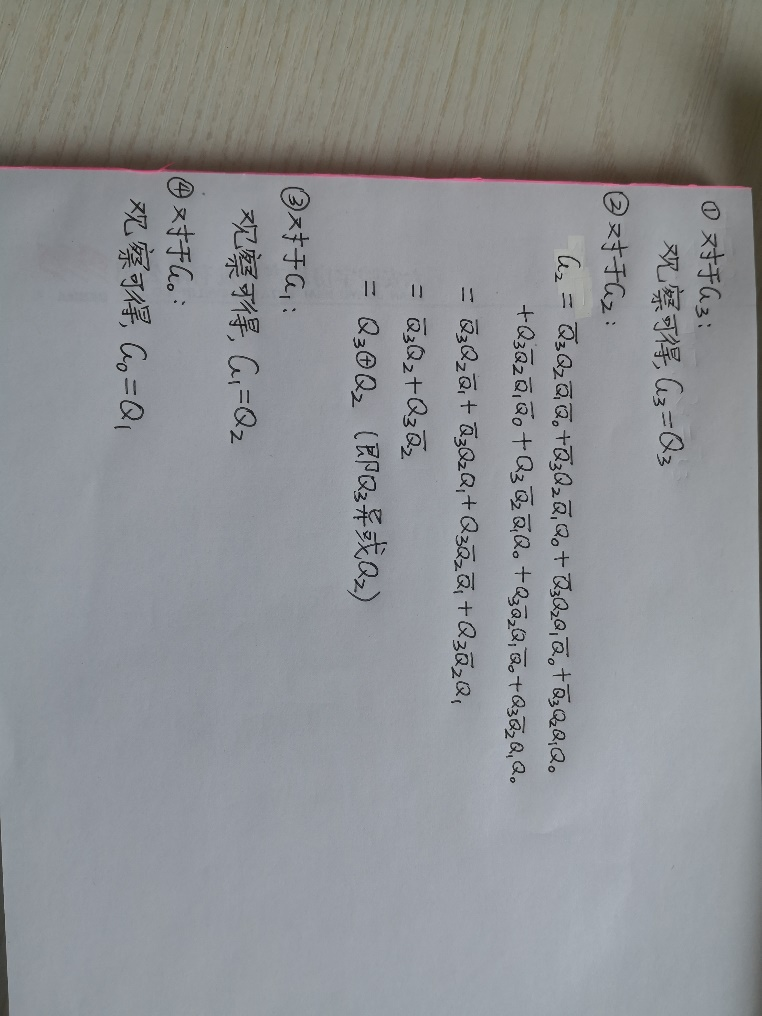 ① 对于G₃:
观察可得, G₃=Q₃
② 对于G₂:
G₂ = Q̅₃Q₂Q̅₁Q̅₀+Q̅₃Q₂Q̅₁Q₀+Q̅₃Q₂Q₁Q̅₀+Q̅₃Q₂Q₁Q₀
+Q₃Q̅₂Q̅₁Q̅₀+Q₃Q̅₂Q̅₁Q₀+Q₃Q̅₂Q₁Q̅₀+Q₃Q̅₂Q₁Q₀
= Q̅₃Q₂Q̅₁+Q̅₃Q₂Q₁+Q₃Q̅₂Q̅₁+Q₃Q̅₂Q₁
= Q̅₃Q₂+Q₃Q̅₂
= Q₃⊕Q₂ (即Q₃异或Q₂)
③ 对于G₁:
观察可得, G₁=Q₂
④ 对于G₀:
观察可得, G₀=Q₁